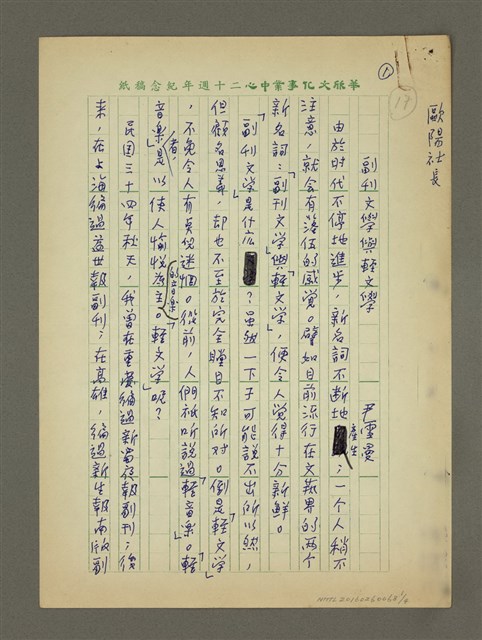 華欣文化事業中心二十週年紀念稿紙
①
17
歐陽社長
副刊文學與輕文學
尹雪曼
由於时代不停地進步,新名詞不断地產生;一个人稍不
注意,就会有落伍的感覚。譬如目前流行在文藝界的两个
新名詞:「副刊文学」與「輕文学」,便令人覚得十分新鮮。
「副刊文学」是什麽?虽然一下子可能說不出所以然,
但顧名思義,却也不至於完全瞠目不知所对。倒是「輕文学」
,不免令人有点迷惘。從前,人們祇听說过「輕音楽」。「輕
音楽」者,是以使人愉悦為主的音樂。「輕文学」呢?
民国三十四年秋天,我曾在重慶編過新蜀夜報副刊;後
来,在上海編過益世報副刊;在高雄,編過新生報南版副
NMTL20160260068 1/4